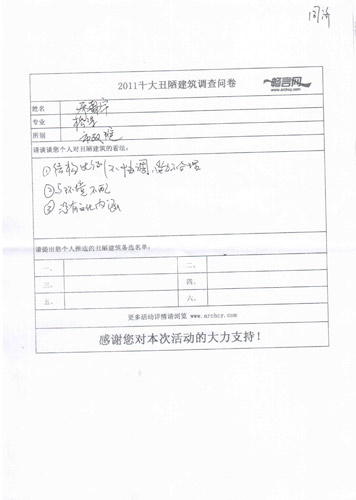 同济
2011十大丑陋建筑调查问卷
畅言网
www.archcy.com
姓名
专业
所别 市政院
请谈谈您个人对丑陋建筑的看法:
①结构比例不协调,造型不合理
②与环境不配
③没有文化内涵
请提出您个人推选的丑陋建筑备选名单:
一、 二、
三、 四、
五、 六、
更多活动详情请浏览 www.archcy.com
感谢您对本次活动的大力支持!